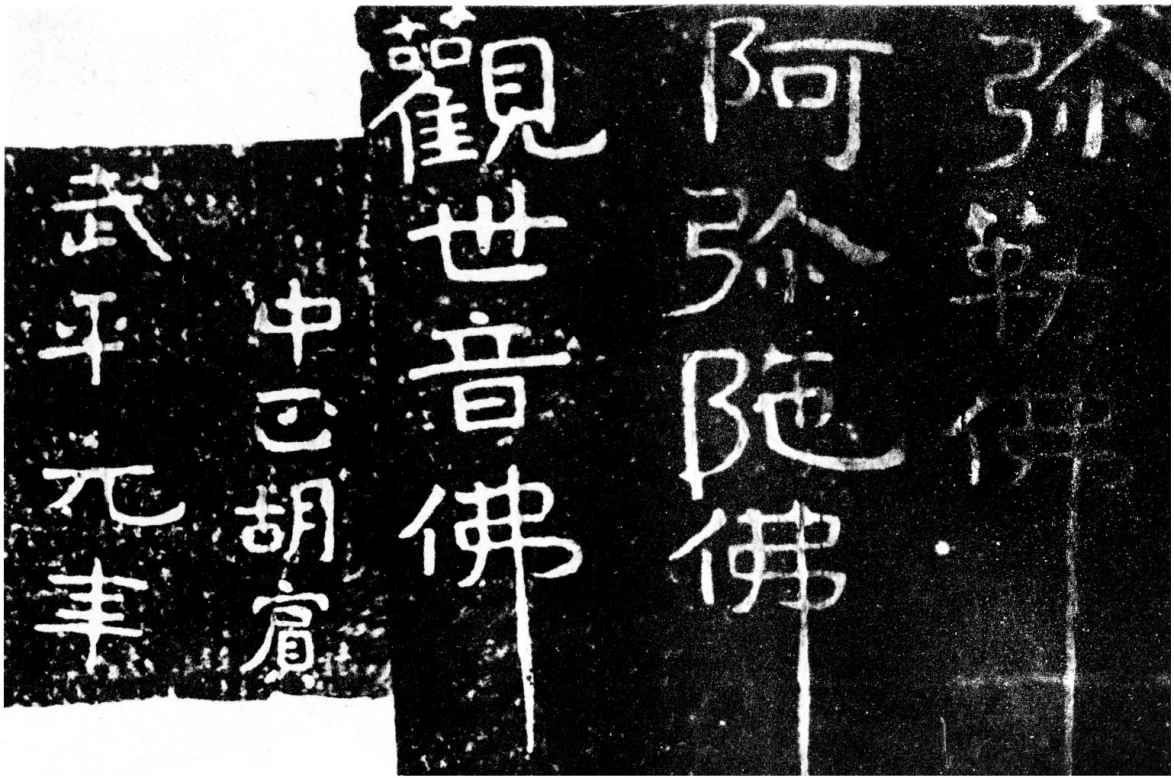 弥勒佛
阿弥陁佛
觀世音佛
中正胡賔
武平元年